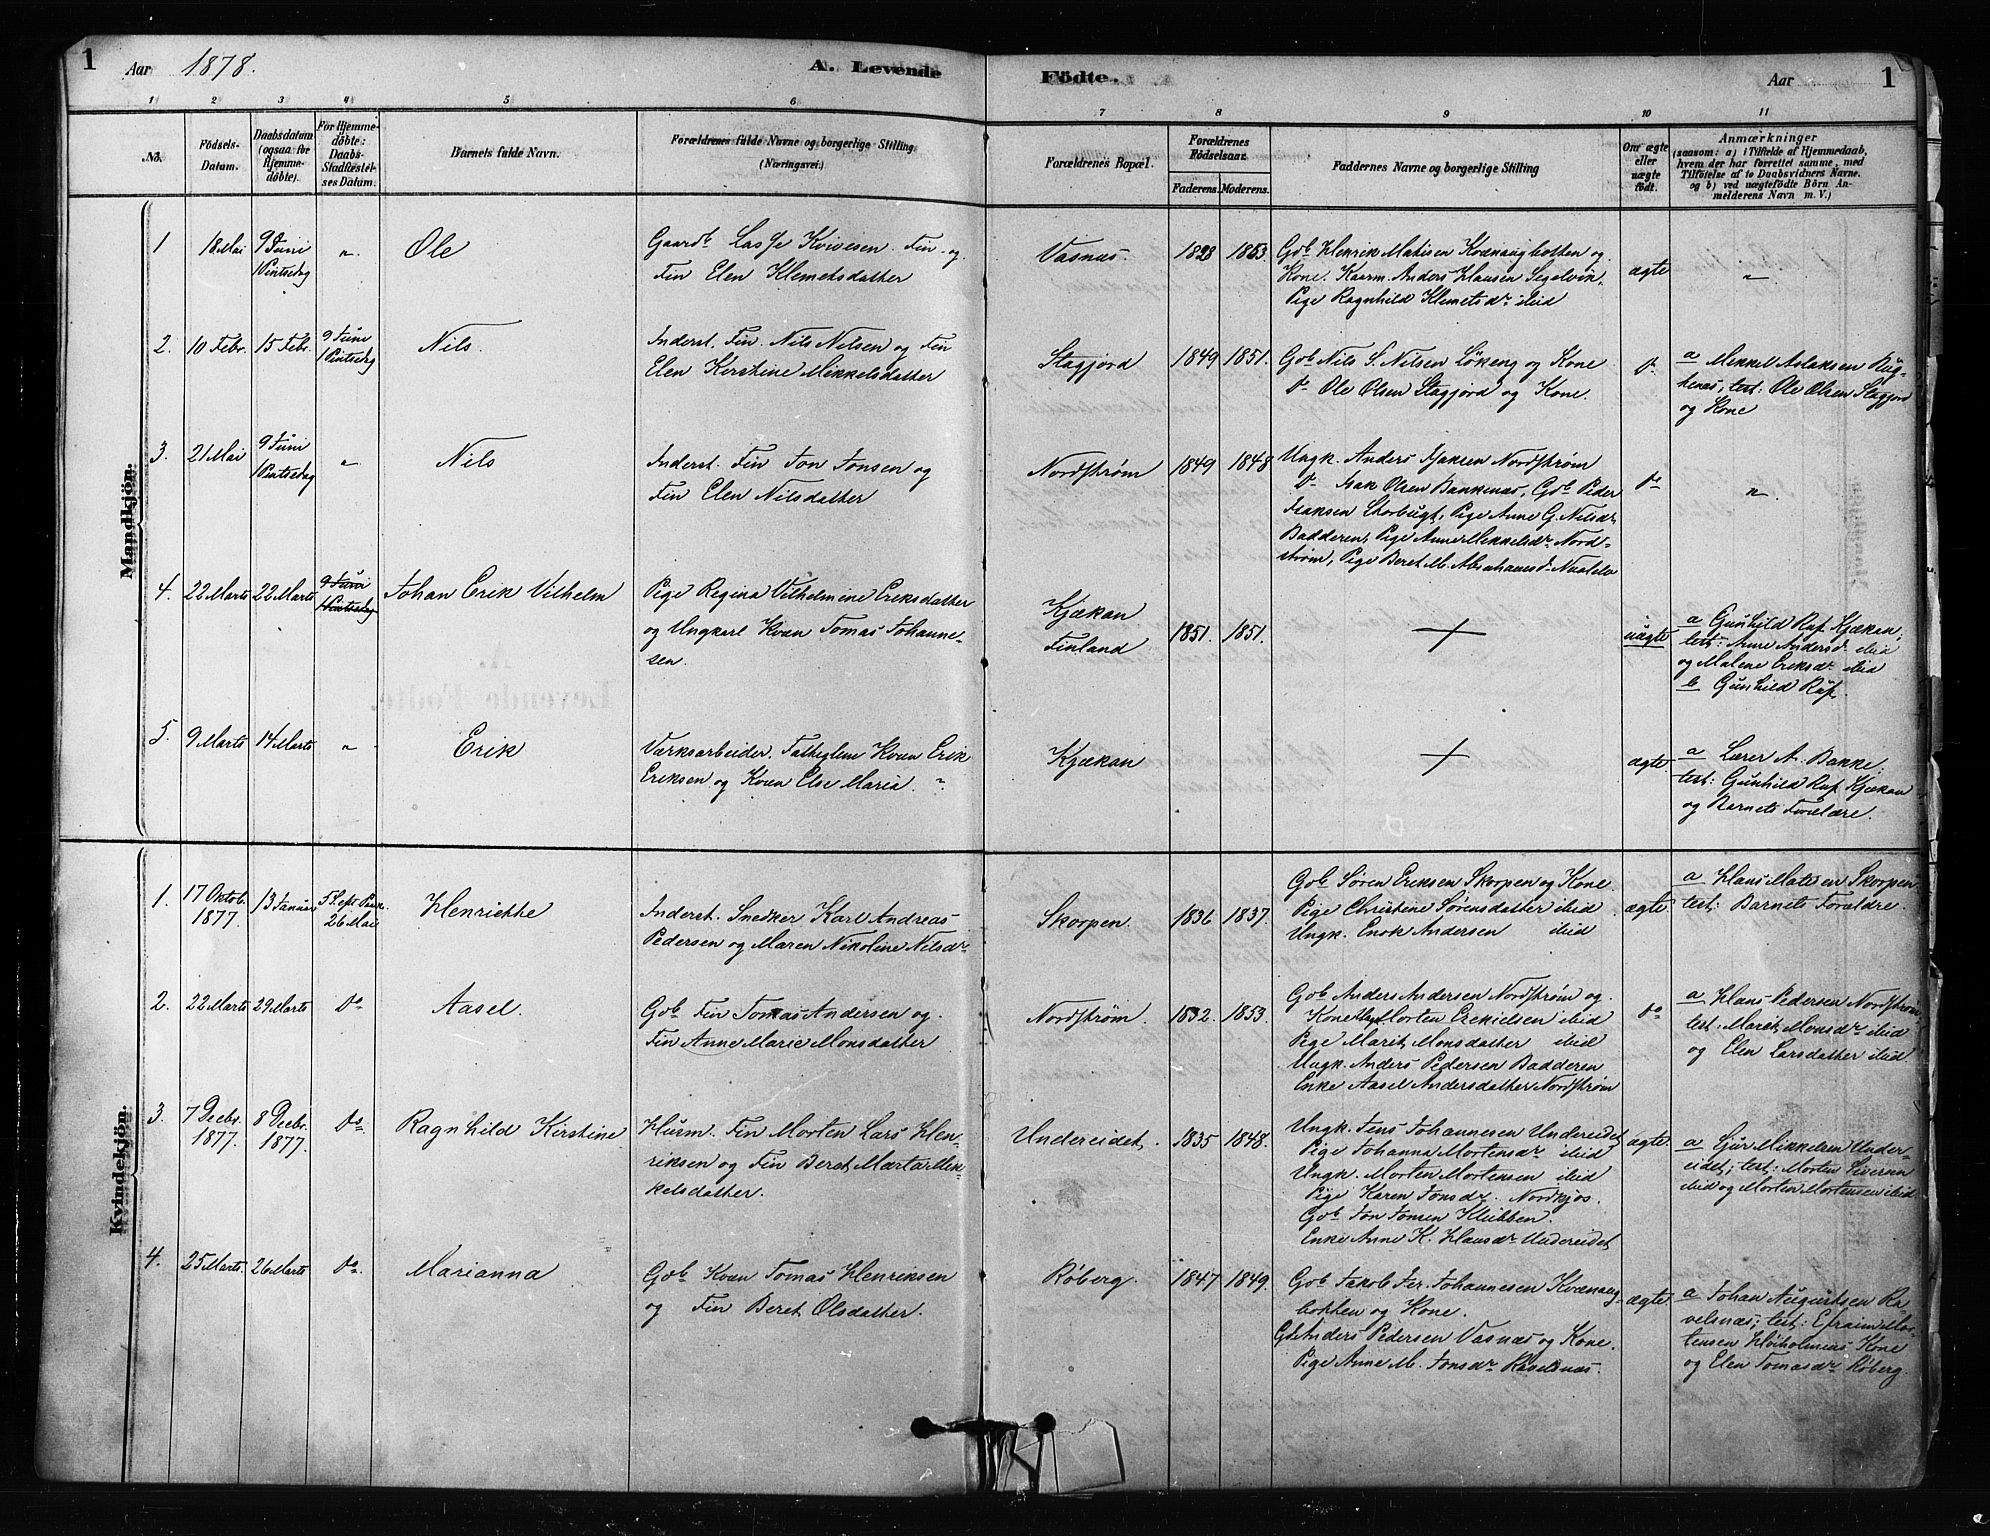 1 Aar 1878. A. Levende Födte. Aar 1
1 2 3 4 5 6 7 8 9 10 11
No. Födsels-Datum. Daabsdatum (ogsaa for Hjemme-döbte). For Hjemme-döbte: Daabs-Stadfæstel-ses Datum. Barnets fulde Navn. Forældrenes fulde Navne og borgerlige Stilling (Næringsvei). Forældrenes Bopæl. Forældrenes Födselsaar. Faderens. Moderens. Faddernes Navne og borgerlige Stilling Om ægte eller uægte födt. Anmærkninger
(saasom: a) i Tilfælde af Hjemmedaab,
hvem der har forrettet samme, med
Tilföielse af to Daabsvidners Navne.
og b) ved uægtefödte Börn An-
melderens Navn m. V.)
Mandkjön.
1 18 Mai 9 Juni 1 Pintsedag " Ole
Gaardb Lasse Kvivesen Fin og
Fin Elen Klemetsdatter
Vasnæs 1828 1853
Gob Henrik Matisen Kvænangbotten og
Kone. Kaarm. Anders Hansen Segelvik.
Pige Ragnhild Klemetsdr ibid
ægte "
2. 10 Febr. 15 Febr. 9 Juni 1 Pintsedag Nils.
Inderst. Fin. Nils Nilsen og Fin
Elen Kirstine Mikkelsdatter
Stagjord 1849 1851.
Gob Nils S. Nilsen Lökeng og Kone
do Ole Olsen Stagjord og Kone.
do
a Mikkel Aslaksen
test: Ole Olsen Stagjord
og Kone
3. 21 Mai 9 Juni 1 Pintsedag " Nils
Inderst. Fin Jon Jonsen og
Fin Elen Nilsdatter
Nordstrøm 1849 1848
Ungk. Anders Isaksen Nordstrøm
do Isak Olsen Bankenæs, Gob Peder
Isaksen Storbugt, Pige Anne G. Nilsdr
Badderen, Pige Anne Mikkelsdr Nord-
strøm, Pige Beret M. Abrahamsdr
do "
4. 22 Marts 22 Marts 9 Juni 1 Pintsedag Johan Erik Vilhelm
Pige Regina Vilhelmine Eriksdatter
og Ungkarl Kvæn Tomas Johanne-
sen.
Kjækan
Finland 1851. 1851.
+
uægte
a Gunhild Raf Kjækan;
test: Anne Andersd. ibid
og Malene Eriksdr ibid
b Gunhild Raf.
5. 9 Marts 14 Marts " Erik
Værksarbeider, Kvæn Erik
Eriksen og Kvæn Else Maria. "
Kjækan
+
ægte.
a Lærer A. Bakke.
test: Gunhild Raf Kjækan
og Barnets Forældre.
Kvindekjön.
1. 17 Oktob. 1877. 13 Januar 26 Mai Henriette
Inderst. Snedker Karl Andreas
Pedersen og Maren Nikoline Nilsdr
Skorpen. 1836 1837.
Gob Søren Eriksen Skorpen og Kone.
Pige Christine Sørensdatter ibid
Ungk. Enok Andersen ibid
ægte.
a Hans Matisen Skorpen
test: Barnets Forældre.
2. 22 Marts 29 Marts do Aasel.
Gob Fin Tomas Andersen og
Fin Anne Marie Monsdatter
Nordstrøm. 1832. 1853.
Gob Anders Andersen Nordstrøm og
Kone, Morten Ezekielsen ibid
Pige Marit Monsdatter ibid
Ungk. Anders Pedersen Badderen
Enke Aasel Andersdatter Nordstrøm
do
a Hans Pedersen Nordstrøm
test. Marit Monsdr ibid
og Elen Larsdatter ibid
3. 7 Decbr. 1877. 8 Decbr. 1877. do Ragnhild Kirstine
Husm. Fin Morten Lars Hen-
riksen og Fin Beret Marta Mik-
kelsdatter.
Undereidet. 1835 1848.
Ungk. Jens Johannesen Undereidet
Pige Johanna Mortensdr ibid
Ungk. Morten Mortensen ibid
Pige Karen Jonsdr. Nordkjos.
Gob Jon Jonsen Klubben.
Enke Anne K. Hansdr Undereidet
ægte.
a Sjur Mikkelsen Under-
eidet; test: Morten Siversen
ibid og Morten Mortensen ibid
4. 25 Marts. 26 Marts do Marianna
Gob Kvæn Tomas Henriksen
og Fin Beret Olsdatter.
Røberg. 1847 1849.
Gob Jakob Jer. Johannesen Kvænang-
botten og Kone.
Gb Anders Pedersen Vasnæs og Kone.
Pige Anne M. Jonsdr Ravelsnæs.
ægte
a Johan Augustsen Ra-
velsnæs; test: Efraim Mor-
tensen Høiholmens Kone
og Elen Tomasdr Røberg.